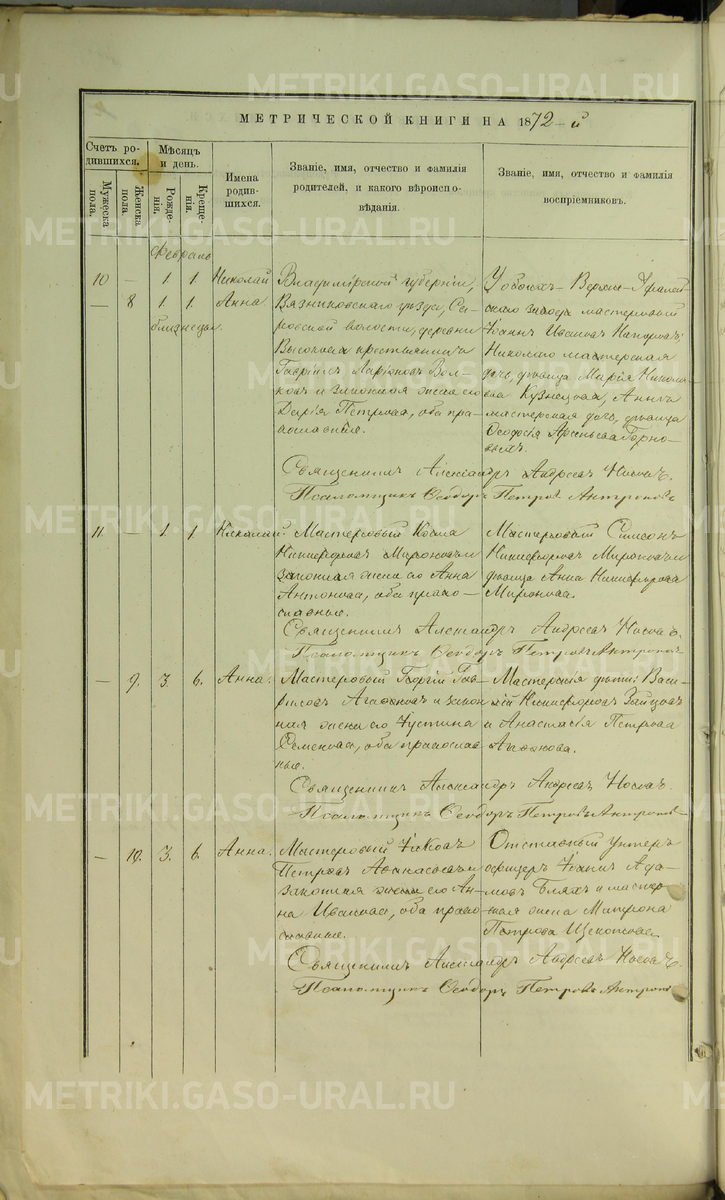 METRIKI.GASO-URAL.RU
МЕТРИЧЕСКОЙ КНИГИ НА 1872-й
Счетъ родившихся.
Мужеска пола.
Женска пола.
Мѣсяцъ и день.
Рожденія.
Крещенія.
Имена родившихся.
Званіе, имя, отчество и фамилія
родителей, и какого вѣроиспо-
вѣданія.
Званіе, имя, отчество и фамилія
воспріемниковъ.
Февраль
10 — 1. 1. Николай
— 8 1. 1. Анна
близнецы.
Владимірской губерніи,
Вязниковскаго уѣзда, Са-
ровской волости, деревни
крестьянинъ
Гавріилъ Ларіоновъ Вол-
ковъ и законная жена его
Дарія Петрова, оба пра-
вославные.
У обоихъ — Верхне-Уфалей
скаго завода мастеровой
Іоаннъ Ивановъ
Николаю мастерская
дочь, дѣвица Марія Никола-
ева Кузнецова, Аннѣ
мастерская дочь, дѣвица
Ѳеодосія Арсеньева Горно-
выхъ.
Священникъ Александръ Андреевъ Носовъ.
Псаломщикъ Ѳеодоръ Петровъ Антроповъ
11 — 1. 1. Николай.
Мастеровой Косма
Никифоровъ Мироновъ и
законная жена его Анна
Антонова, оба право-
славные.
Мастеровой Симеонъ
Никифоровъ Мироновъ и
дѣвица Анна Никифорова
Миронова.
Священникъ Александръ Андреевъ Носовъ.
Псаломщикъ Ѳеодоръ Петровъ Антроповъ
— 9. 3. 6. Анна.
Мастеровой Георгій Гав-
риловъ Агафоновъ и закон-
ная жена его Іустина
Семенова, оба православ-
ные.
Мастерскія дѣти: Васи-
лій Никифоровъ Зайцовъ
и Анастасія Петрова
Агафонова.
Священникъ Александръ Андреевъ Носовъ.
Псаломщикъ Ѳеодоръ Петровъ Антроповъ
— 10. 3. 6. Анна.
Мастеровой Іаковъ
Петровъ Аѳанасьевъ и
законная жена его Ан-
на Иванова, оба право-
славные.
Отставный унтеръ
офицеръ Іоаннъ Ада-
мовъ Бляхъ и мастер-
ская жена Матрона
Петрова
Священникъ Александръ Андреевъ Носовъ.
Псаломщикъ Ѳеодоръ Петровъ Антроповъ